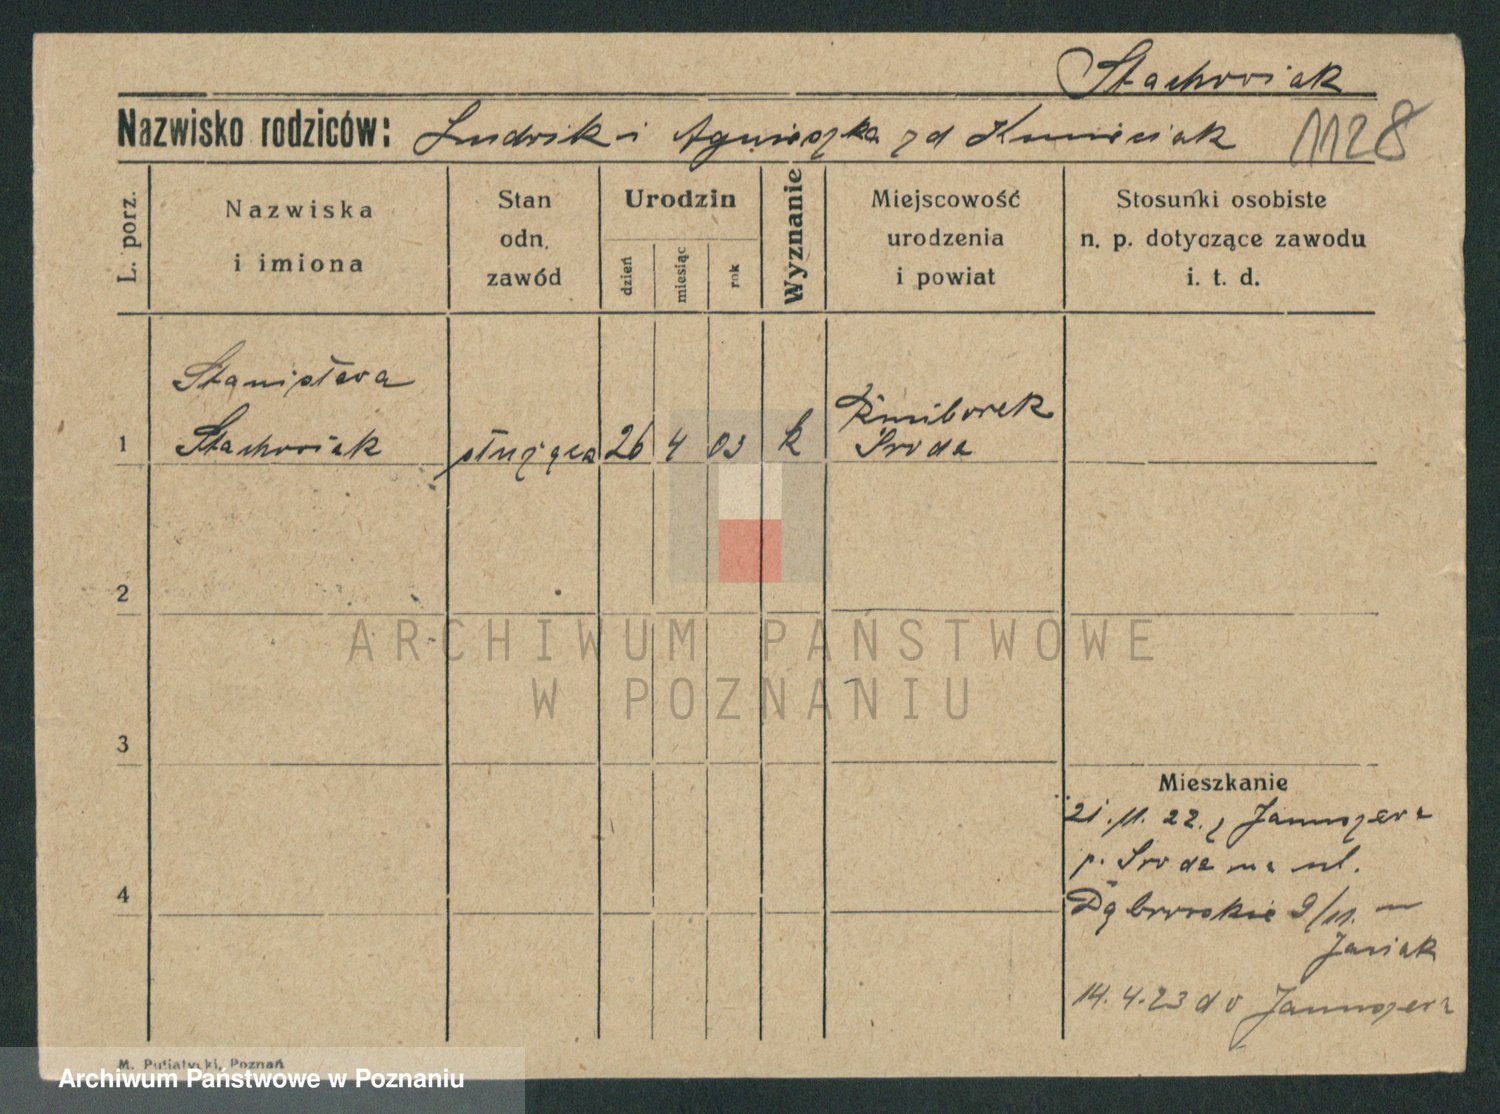 Stachowiak
Nazwisko rodziców: Ludwik i Agnieszka zd Kmieciak 1128
L. porz.
Nazwiska
i imiona
Stan
odn.
zawód
Urodzin
dzień
miesiąc
rok
Wyznanie
Miejscowość
urodzenia
i powiat
Stosunki osobiste
n. p. dotyczące zawodu
i. t. d.
Stanisława
1 Stachowiak służąca 26 4 03 k
Środa
2
ARCHIWUM PAŃSTWOWE
W POZNANIU
3
Mieszkanie
21.11.22. z
p. Środa na ul.
4
Dąbrowskie 9/11. –
Jasiak
14.4.23 do
M. Putiatycki, Poznań
Archiwum Państwowe w Poznaniu